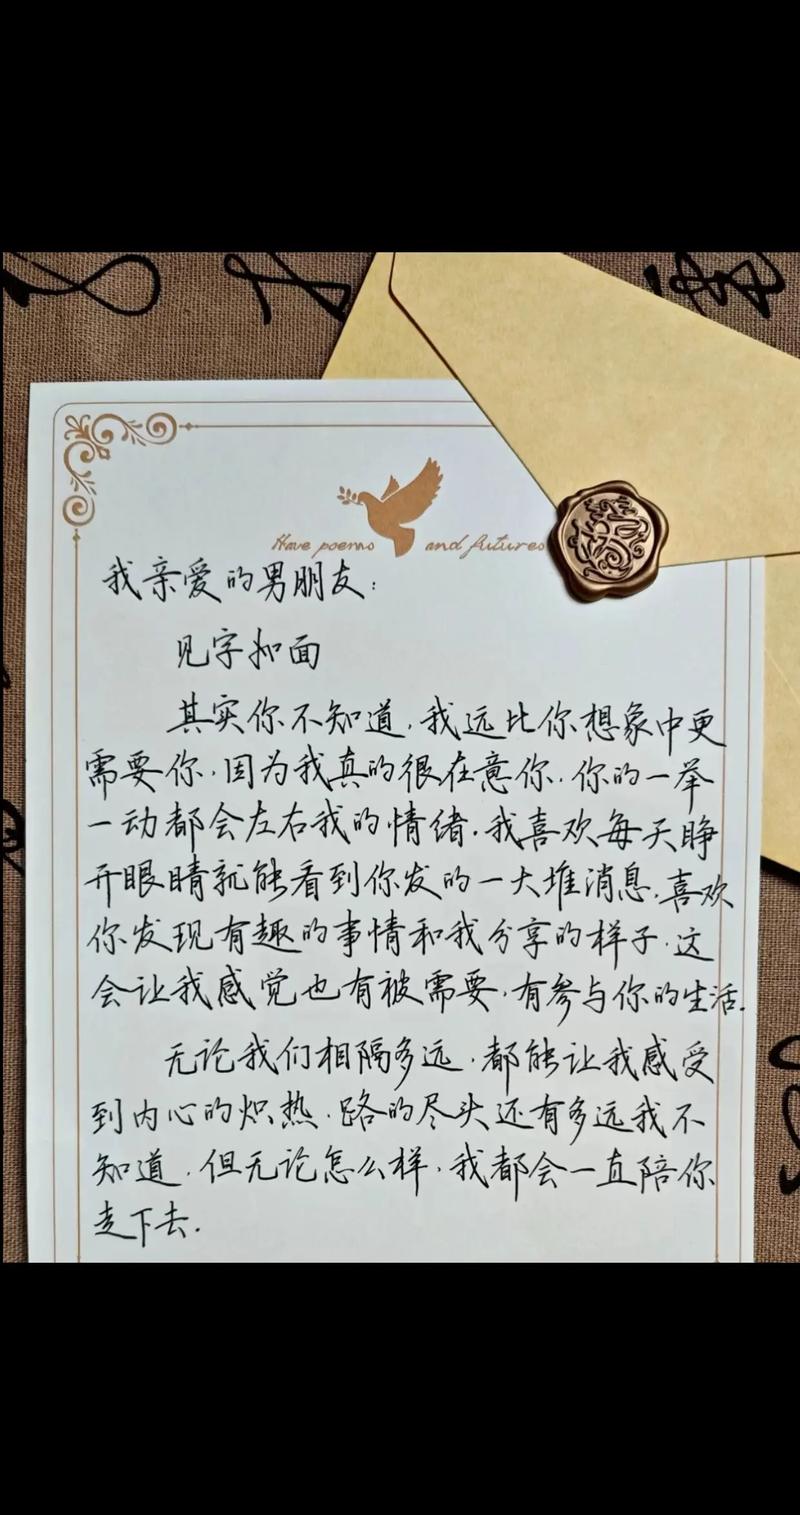 Have poems and futures
我亲爱的男朋友:
见字如面
其实你不知道,我远比你想象中更
需要你,因为我真的很在意你,你的一举
一动都会左右我的情绪,我喜欢每天睁
开眼睛就能看到你发的一大堆消息,喜欢
你发现有趣的事情和我分享的样子,这
会让我感觉也有被需要,有参与你的生活.
无论我们相隔多远,都能让我感受
到内心的炽热,路的尽头还有多远我不
知道,但无论怎么样,我都会一直陪你
走下去.